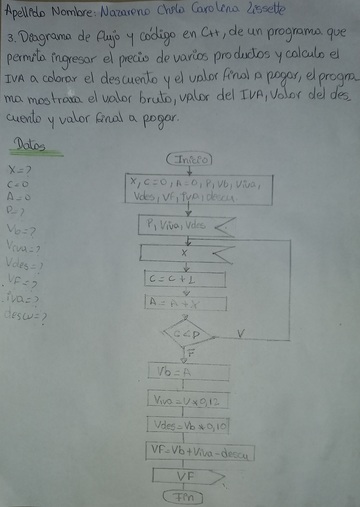 Apellido Nombre: Nazareno Chila Carolina Lissette
3. Diagrama de flujo y código en C++, de un programa que
permita ingresar el precio de varios productos y calculo el
IVA a colorar el descuento y el valor final a pagar, el progra
ma mostrara el valor bruto, valor del IVA, Valor del des
cuento y valor final a pagar.
Datos
X=?
C=0
A=0
P=?
Vb=?
Viva=?
Vdes=?
VF=?
iva=?
descu=?
Inicio
X, C=0, A=0, P, Vb, Viva,
Vdes, VF, iva, descu
P, Viva, Vdes
X
C = C+1
A = A+X
C<P
V
F
Vb = A
Viva=V*0,12
Vdes=Vb*0,10
VF=Vb+Viva-descu
VF
Fin